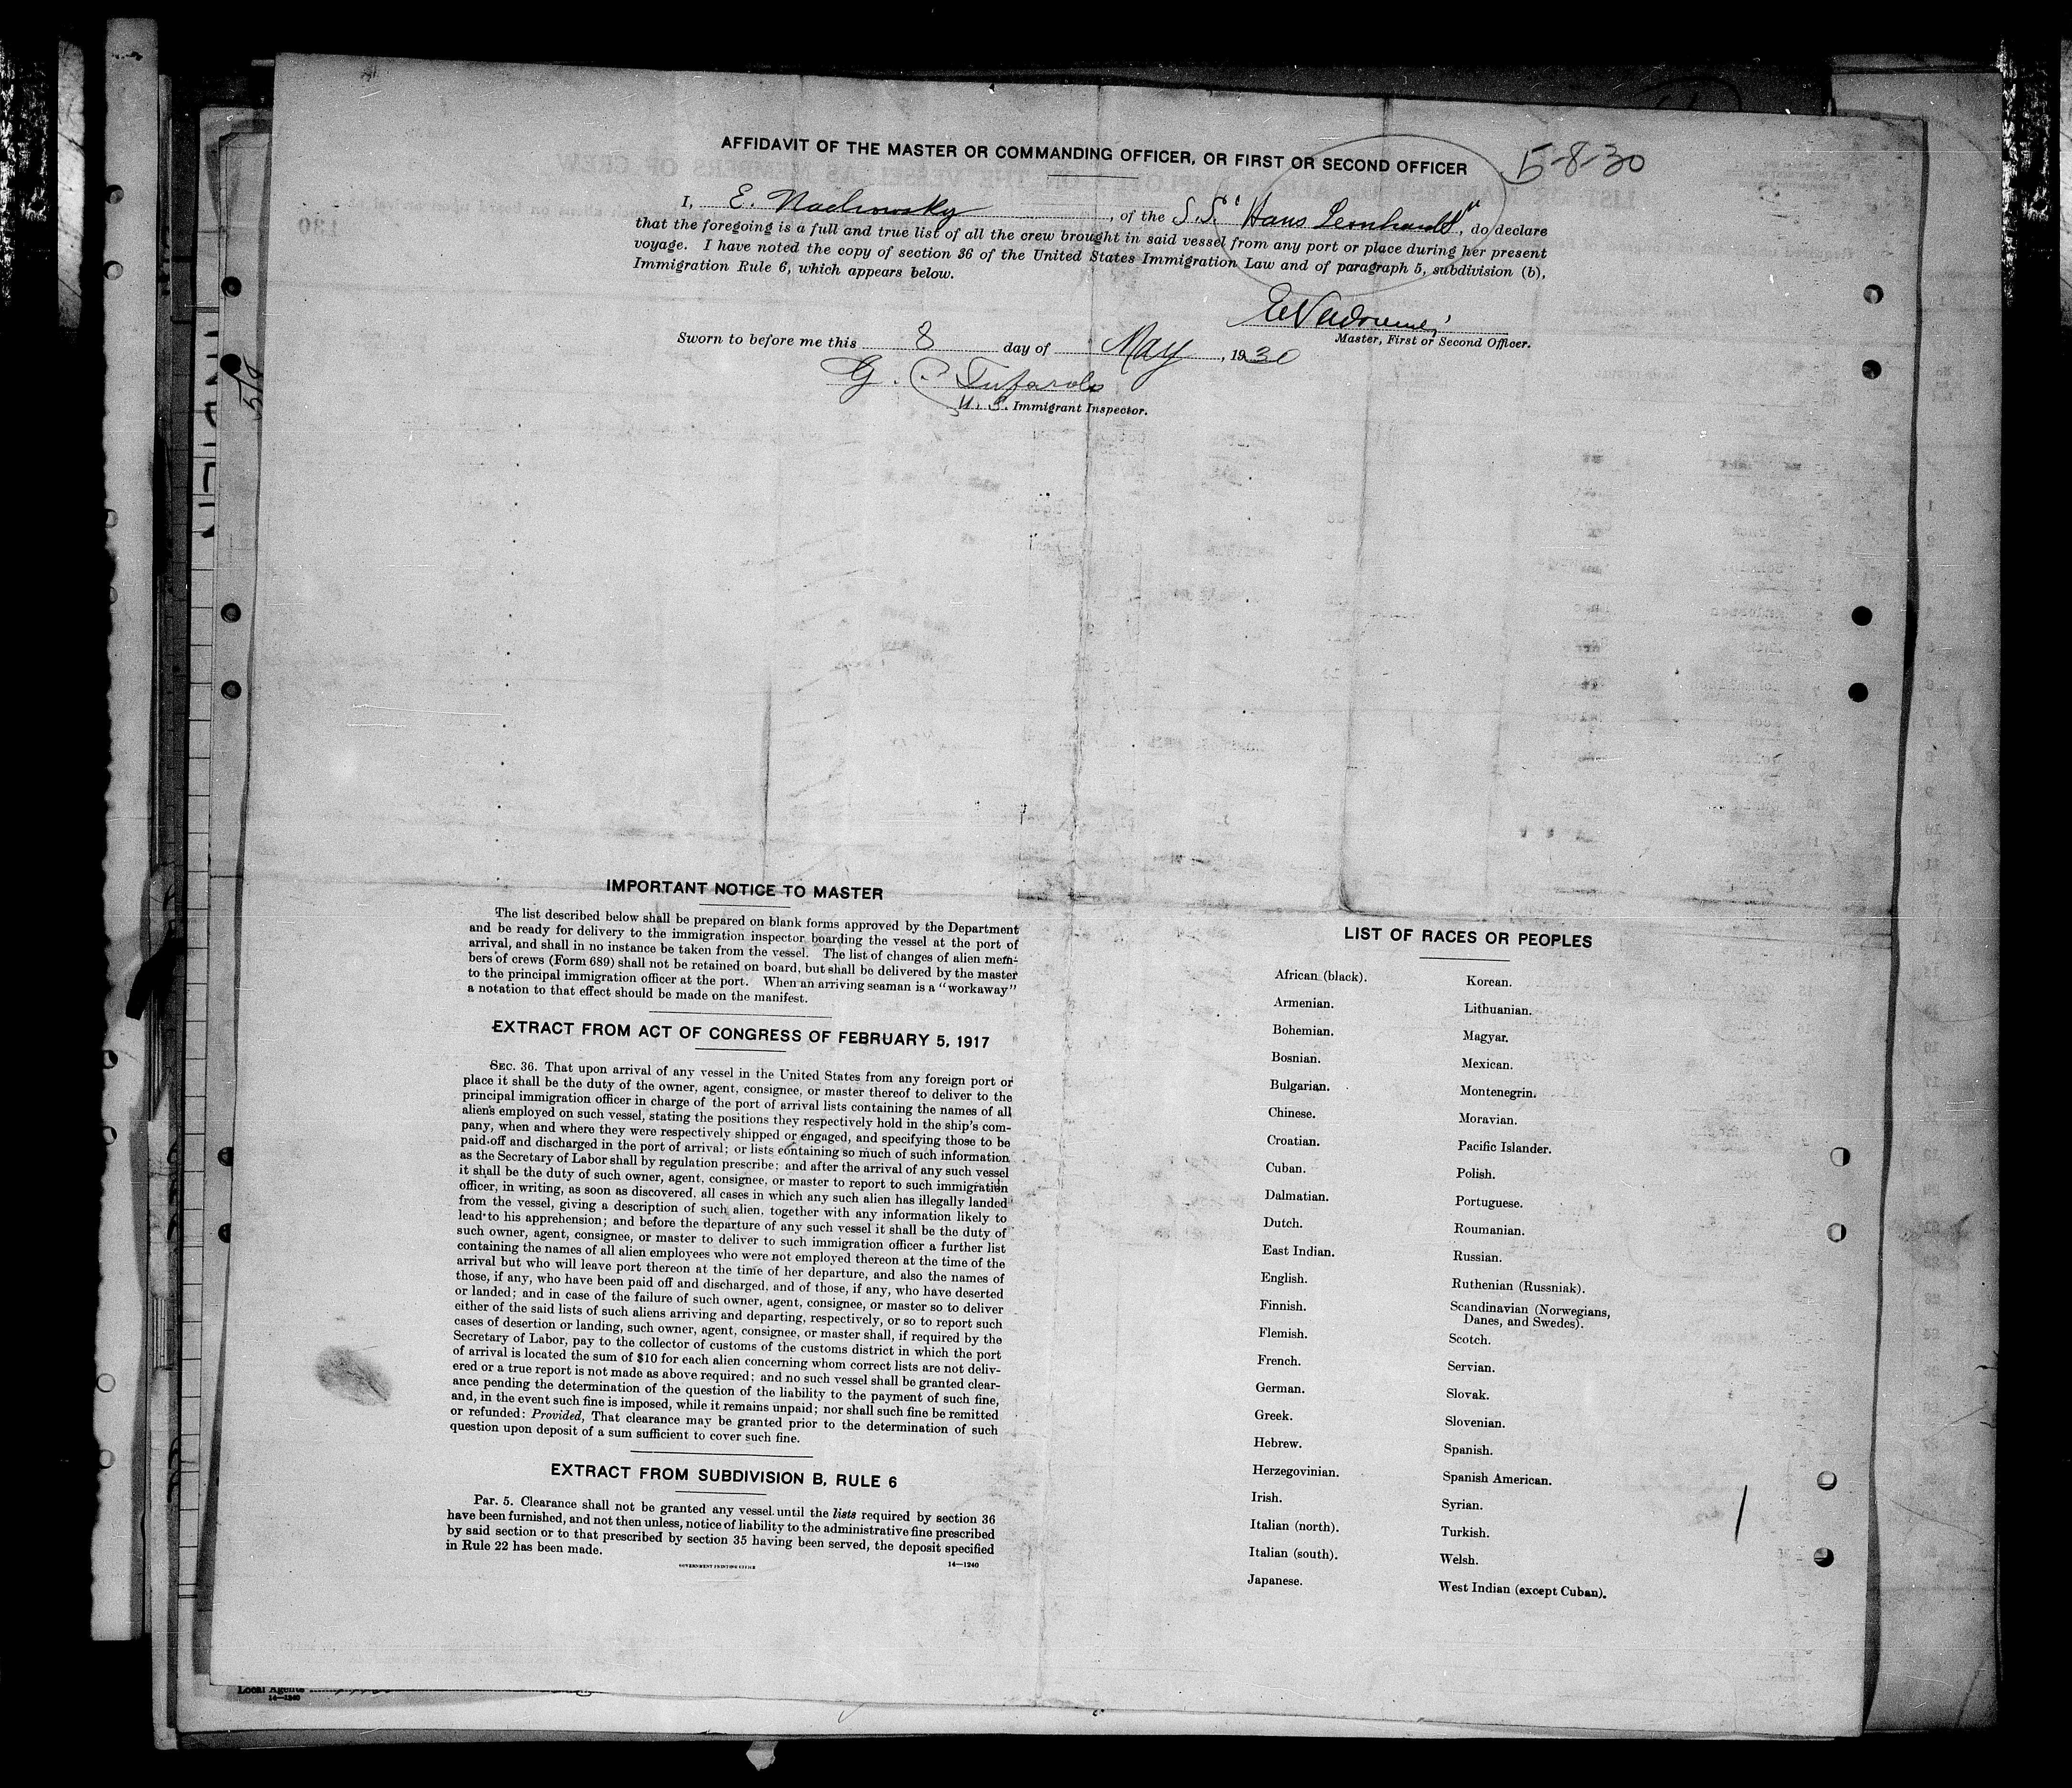 AFFIDAVIT OF THE MASTER OR COMMANDING OFFICER, OR FIRST OR SECOND OFFICER
5-8-30
I, E. Nachowsky, of the S.S. "Hans Leonhardt", do declare
that the foregoing is a full and true list of all the crew brought in said vessel from any port or place during her present
voyage. I have noted the copy of section 36 of the United States Immigration Law and of paragraph 5, subdivision (b),
Immigration Rule 6, which appears below.
Master, First or Second Officer.
Sworn to before me this 8 day of May, 1930
G. C.
U. S. Immigrant Inspector.
IMPORTANT NOTICE TO MASTER
The list described below shall be prepared on blank forms approved by the Department
and be ready for delivery to the immigration inspector boarding the vessel at the port of
arrival, and shall in no instance be taken from the vessel. The list of changes of alien mem-
bers of crews (Form 689) shall not be retained on board, but shall be delivered by the master
to the principal immigration officer at the port. When an arriving seaman is a "workaway"
a notation to that effect should be made on the manifest.
EXTRACT FROM ACT OF CONGRESS OF FEBRUARY 5, 1917
SEC. 36. That upon arrival of any vessel in the United States from any foreign port or
place it shall be the duty of the owner, agent, consignee, or master thereof to deliver to the
principal immigration officer in charge of the port of arrival lists containing the names of all
aliens employed on such vessel, stating the positions they respectively hold in the ship's com-
pany, when and where they were respectively shipped or engaged, and specifying those to be
paid off and discharged in the port of arrival; or lists containing so much of such information
as the Secretary of Labor shall by regulation prescribe; and after the arrival of any such vessel
it shall be the duty of such owner, agent, consignee, or master to report to such immigration
officer, in writing, as soon as discovered, all cases in which any such alien has illegally landed
from the vessel, giving a description of such alien, together with any information likely to
lead to his apprehension; and before the departure of any such vessel it shall be the duty of
such owner, agent, consignee, or master to deliver to such immigration officer a further list
containing the names of all alien employees who were not employed thereon at the time of the
arrival but who will leave port thereon at the time of her departure, and also the names of
those, if any, who have been paid off and discharged, and of those, if any, who have deserted
or landed; and in case of the failure of such owner, agent, consignee, or master so to deliver
either of the said lists of such aliens arriving and departing, respectively, or so to report such
cases of desertion or landing, such owner, agent, consignee, or master shall, if required by the
Secretary of Labor, pay to the collector of customs of the customs district in which the port
of arrival is located the sum of $10 for each alien concerning whom correct lists are not deliv-
ered or a true report is not made as above required; and no such vessel shall be granted clear-
ance pending the determination of the question of the liability to the payment of such fine,
and, in the event such fine is imposed, while it remains unpaid; nor shall such fine be remitted
or refunded: Provided, That clearance may be granted prior to the determination of such
question upon deposit of a sum sufficient to cover such fine.
EXTRACT FROM SUBDIVISION B, RULE 6
Par. 5. Clearance shall not be granted any vessel until the lists required by section 36
have been furnished, and not then unless, notice of liability to the administrative fine prescribed
by said section or to that prescribed by section 35 having been served, the deposit specified
in Rule 22 has been made.
GOVERNMENT PRINTING OFFICE 14—1240
LIST OF RACES OR PEOPLES
African (black).
Armenian.
Bohemian.
Bosnian.
Bulgarian.
Chinese.
Croatian.
Cuban.
Dalmatian.
Dutch.
East Indian.
English.
Finnish.
Flemish.
French.
German.
Greek.
Hebrew.
Herzegovinian.
Irish.
Italian (north).
Italian (south).
Japanese.
Korean.
Lithuanian.
Magyar.
Mexican.
Montenegrin.
Moravian.
Pacific Islander.
Polish.
Portuguese.
Roumanian.
Russian.
Ruthenian (Russniak).
Scandinavian (Norwegians,
Danes, and Swedes).
Scotch.
Servian.
Slovak.
Slovenian.
Spanish.
Spanish American.
Syrian.
Turkish.
Welsh.
West Indian (except Cuban).
Local Agents
14—1240